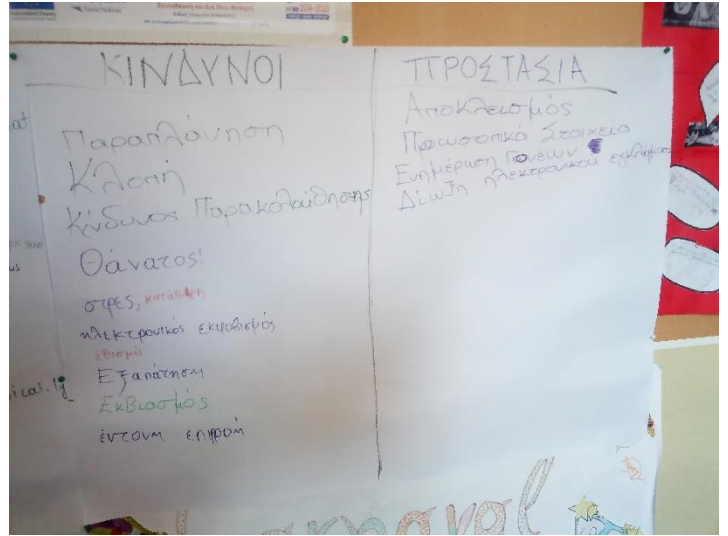 ΚΙΝΔΥΝΟΙ
Παραπλάνηση
Κλοπή
Κίνδυνος Παρακολούθησης
Θάνατος!
στρες, κατάθλιψη
ηλεκτρονικός εκφοβισμός
εθισμός
Εξαπάτηση
Εκβιασμός
έντονη επιρροή
ΠΡΟΣΤΑΣΙΑ
Αποκλεισμός
Προσωπικά Στοιχεία
Ενημέρωση Γονέων
Δίωξη ηλεκτρονικού εγκλήματος
2014-2020